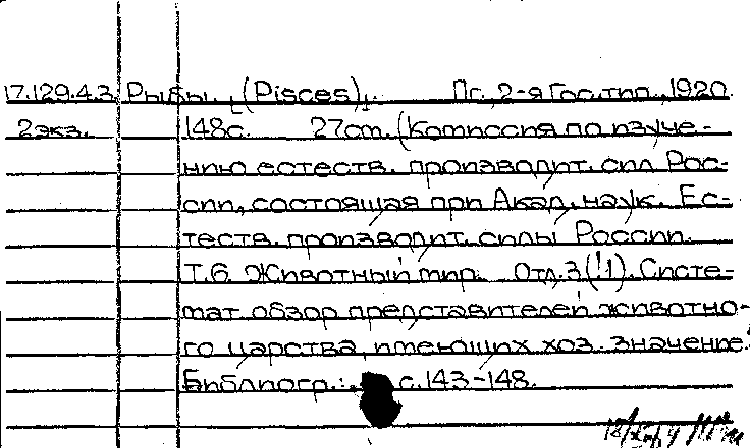 17.129.4.3. Рыбы. (Pisces). Пг., 2-я Гос.тип., 1920.
2экз. 148с. 27cm. (Комиссия по изуче-
нию естеств. производит. сил Рос-
сии, состоящая при Акад. наук. Ес-
теств. производит. силы России.
Т.6. Животный мир. Отд.3(!1). Систе-
мат. обзор представителей животно-
го царства, имеющих хоз. значение.
Библиогр.: с.143-148.